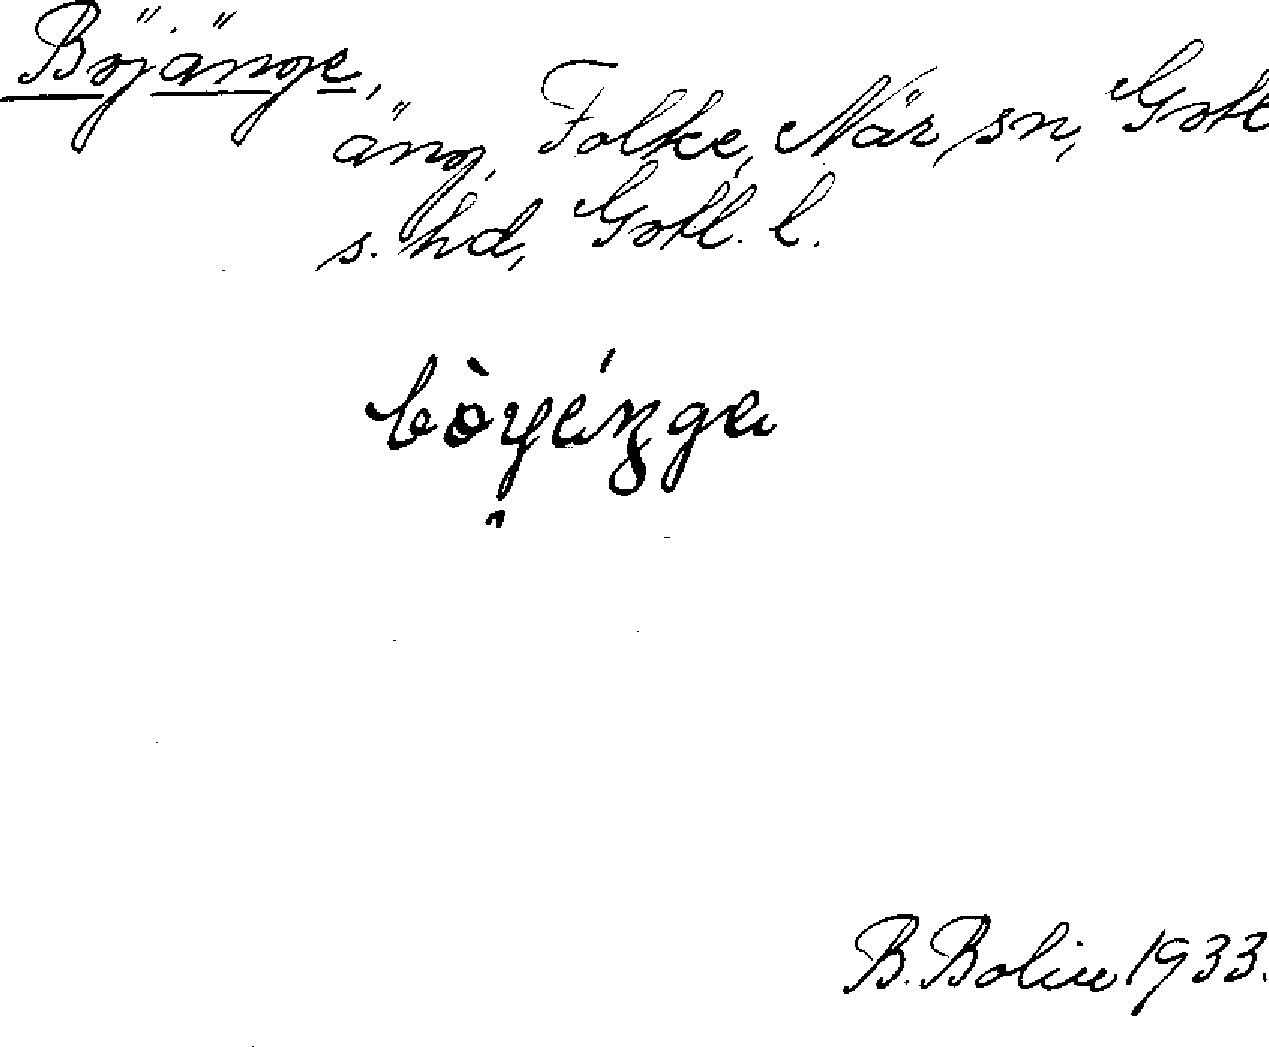 Böjänge,
äng, Folke, När sn, Gotl
s. hd, Gotl. l.
bòyéŋge
B. Bolin 1933.